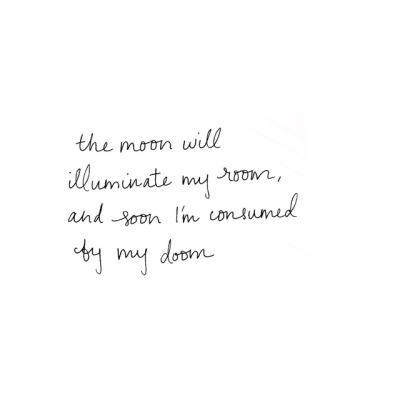 the moon will
illuminate my room,
and soon I'm consumed
by my doom